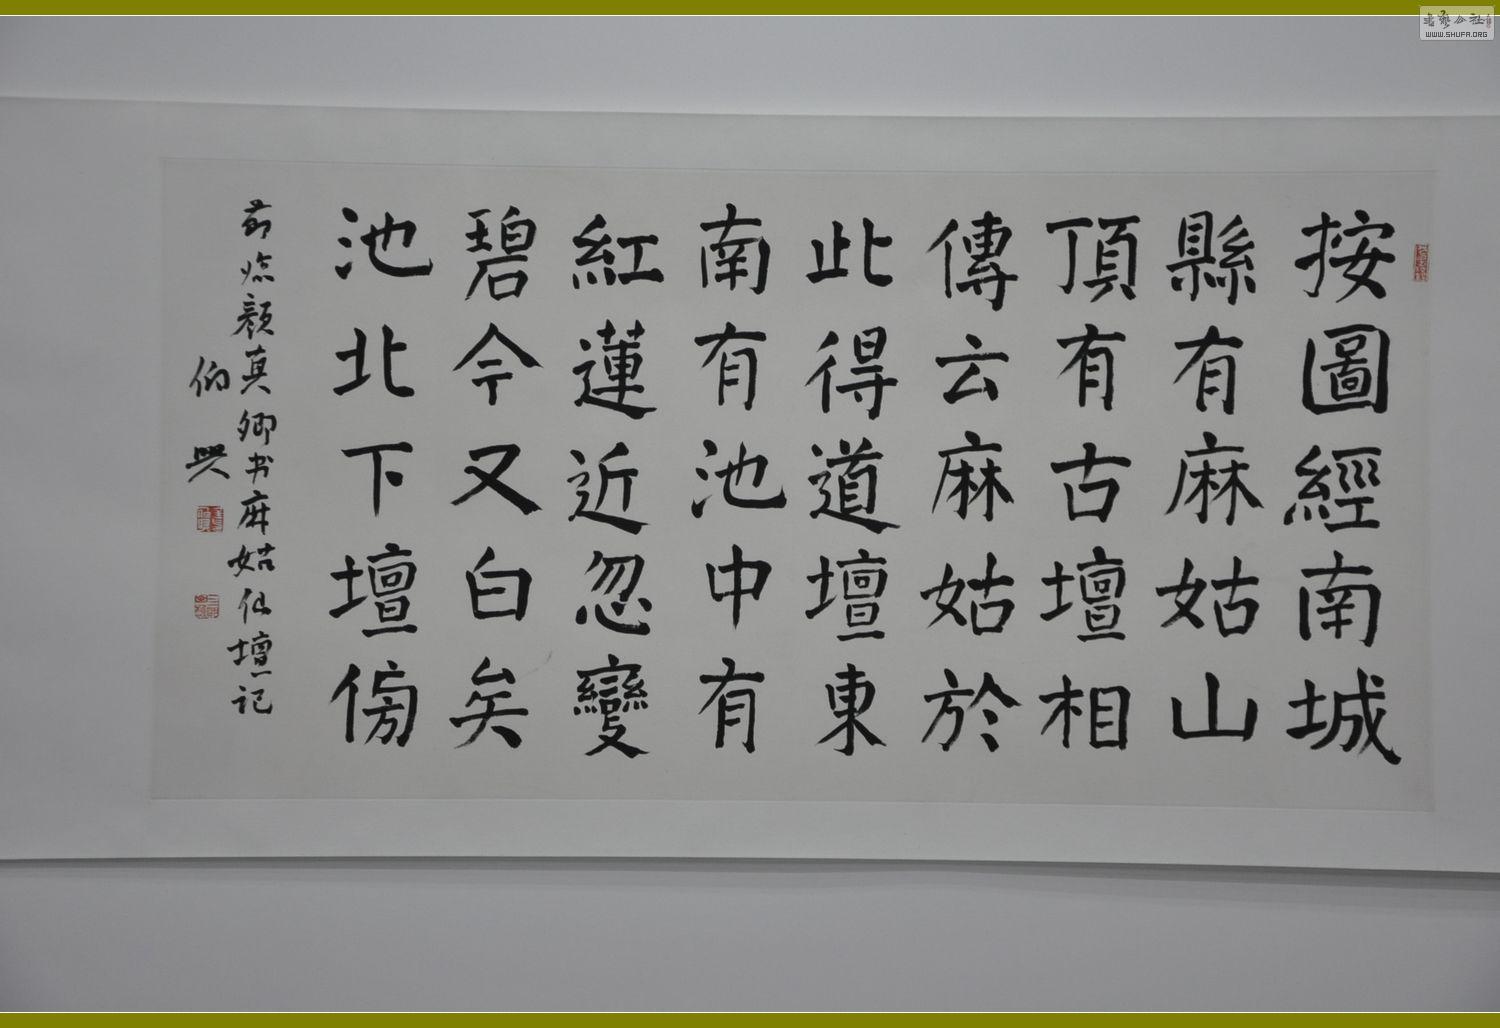 按圖經南城
縣有麻姑山
頂有古壇相
傳云麻姑於
此得道壇東
南有池中有
紅蓮近忽變
碧今又白矣
池北下壇傍
節临顏真卿书麻姑仙壇记
伯興
WWW.SHUFA.ORG